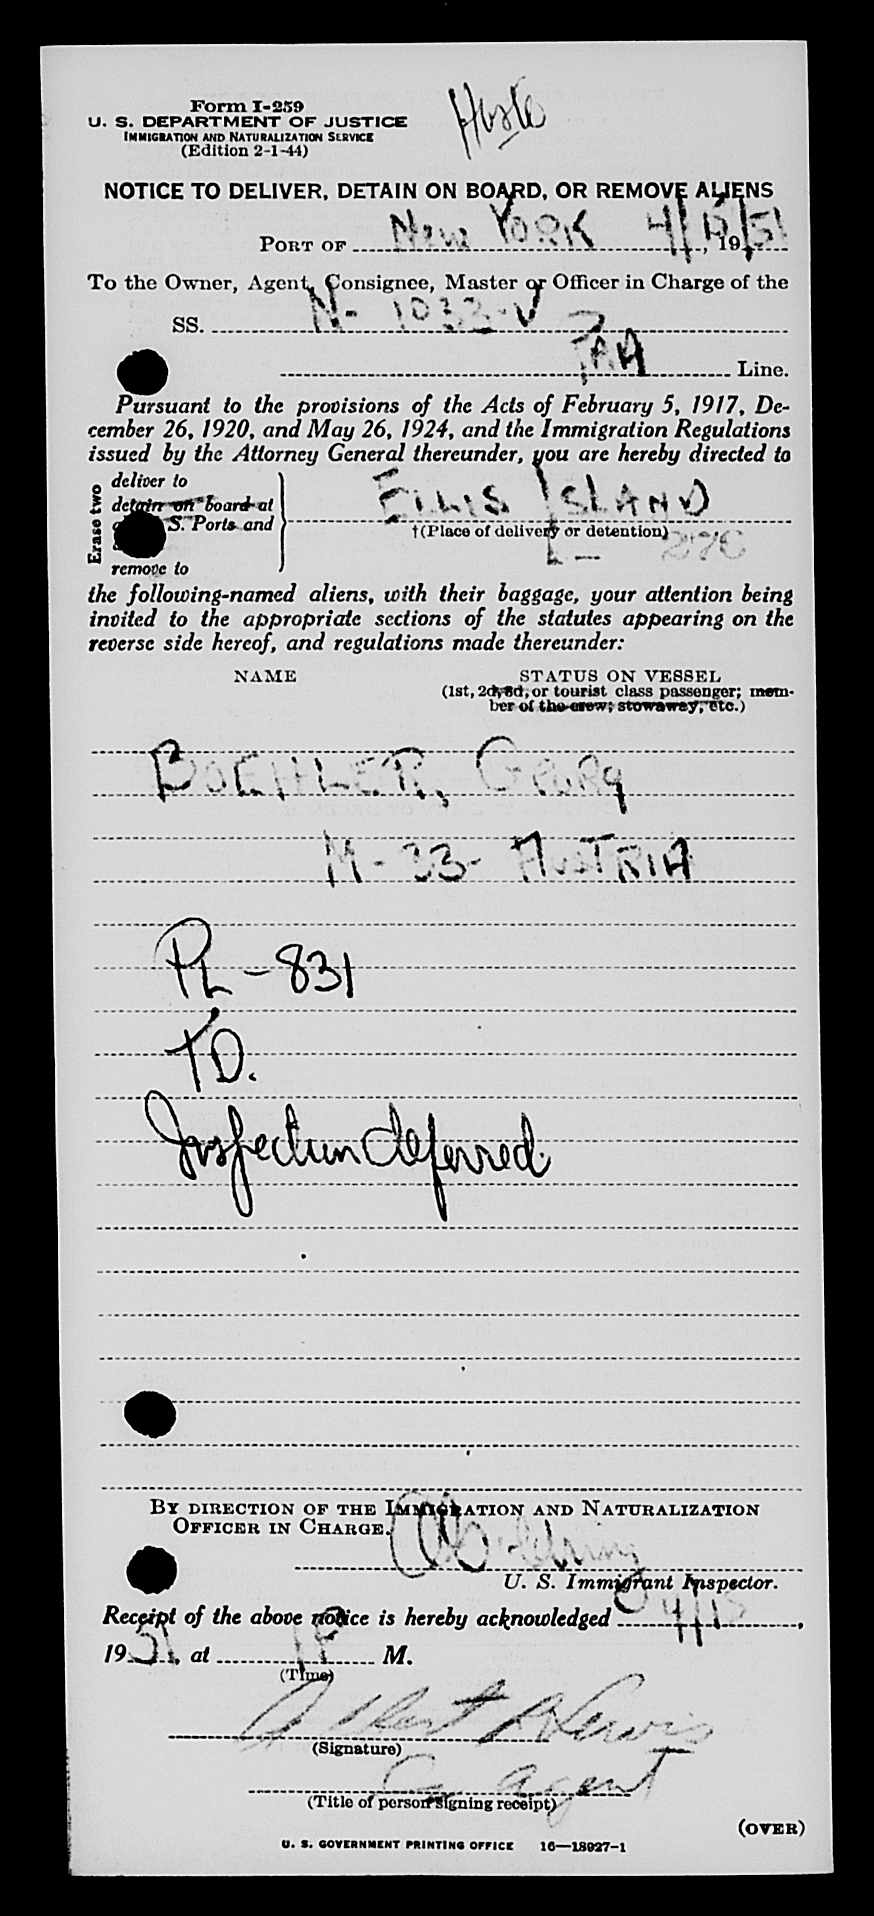 Form I-259
U. S. DEPARTMENT OF JUSTICE
IMMIGRATION AND NATURALIZATION SERVICE
(Edition 2-1-44)
NOTICE TO DELIVER, DETAIN ON BOARD, OR REMOVE ALIENS
PORT OF New YORK 4/15/51, 19
To the Owner, Agent, Consignee, Master or Officer in Charge of the
SS. N-1033-V
PAA Line.
Pursuant to the provisions of the Acts of February 5, 1917, De-
cember 26, 1920, and May 26, 1924, and the Immigration Regulations
issued by the Attorney General thereunder, you are hereby directed to
Erase two
deliver to
detain on board at
S. Ports and
remove to
ELLIS ISLAND
†(Place of delivery or detention)
the following-named aliens, with their baggage, your attention being
invited to the appropriate sections of the statutes appearing on the
reverse side hereof, and regulations made thereunder:
NAME STATUS ON VESSEL
(1st, 2d, 3d, or tourist class passenger; mem-
ber of the crew; stowaway, etc.)
BOEHLER, Georg
M-33-AUSTRIA
PL-831
T.D.
Inspection deferred.
BY DIRECTION OF THE IMMIGRATION AND NATURALIZATION
OFFICER IN CHARGE.
U. S. Immigrant Inspector.
Receipt of the above notice is hereby acknowledged 4/15,
1951, at 1P M.
(Time)
Albert Lewis
(Signature)
agent
(Title of person signing receipt)
(OVER)
U. S. GOVERNMENT PRINTING OFFICE 16—18927-1